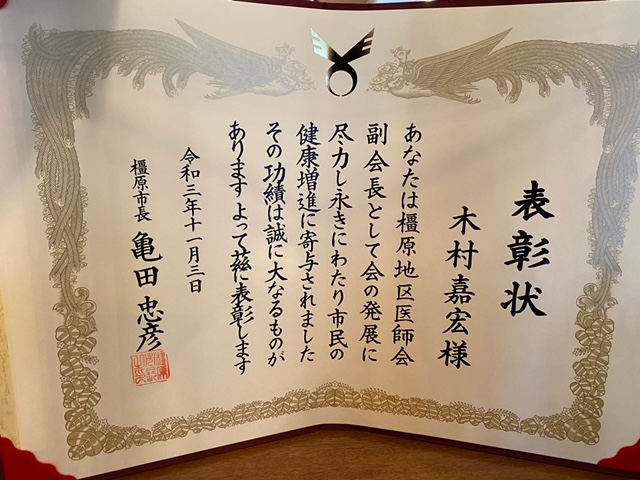 表彰状
木村嘉宏様
あなたは橿原地区医師会
副会長として会の発展に
尽力し永きにわたり市民の
健康増進に寄与されました
その功績は誠に大なるものが
あります よって茲に表彰します
令和三年十一月三日
橿原市長 亀田忠彦